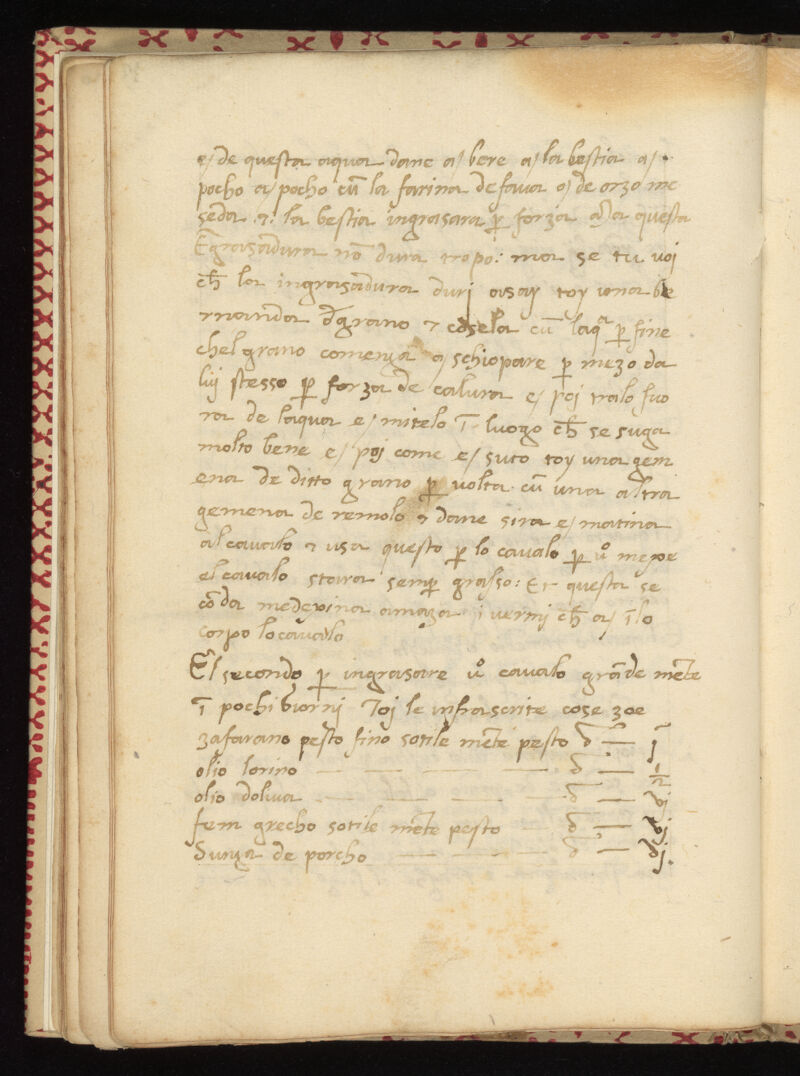 e/ de questa aqua dane a/ bere a/ la bestia a/.
pocho a/ pocho cū la farina de fava o/ de orzo me
seda &: la bestia ingrasara p̱ forza ma questa
Ēgrasadura nō dura tropo: ma se tu voi
ch̄ la ingrasadura duri asay toy una be
rnanda d̄ grano & cosela cū laqᵃ p̱ fine
chel grano comenza a/ schiopare p̱ mezo da
luj stesso p̱ forza de calura e/ poi tralo fuo
ra de laqua e/ mitelo ī luogo ch̄ se suga
molto bene e/ poj come e/ suto toy una gem
ena de ditto grano p̱ volta cū una altra
gemena de remolo & dane sira e/ matina
al cavalo & usa questo p̱ lo cavalo p̱ uº mexe
el cavalo stara semp̱ grasso: Et questa se
cōda medexina amaza i vermj ch̄ a/ ī lo
corpo lo cavalo
El secondo p̱ ingrasare uº cavalo grāde mēte
ī pochi giorni Toj le infrascrite cose zoe
zafarano pesto fino sotile mēte pesto — j
olio lorino — — — — ½
olio doliva — — — — vj
fem grecho sotile mēte pesto — — vj
Sunza de porcho — — — — vj.